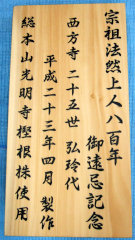 宗祖法然上人八百年
御遠忌記念
西方寺二十五世弘玲代
平成二十三年四月製作
総本山光明寺樫根株使用